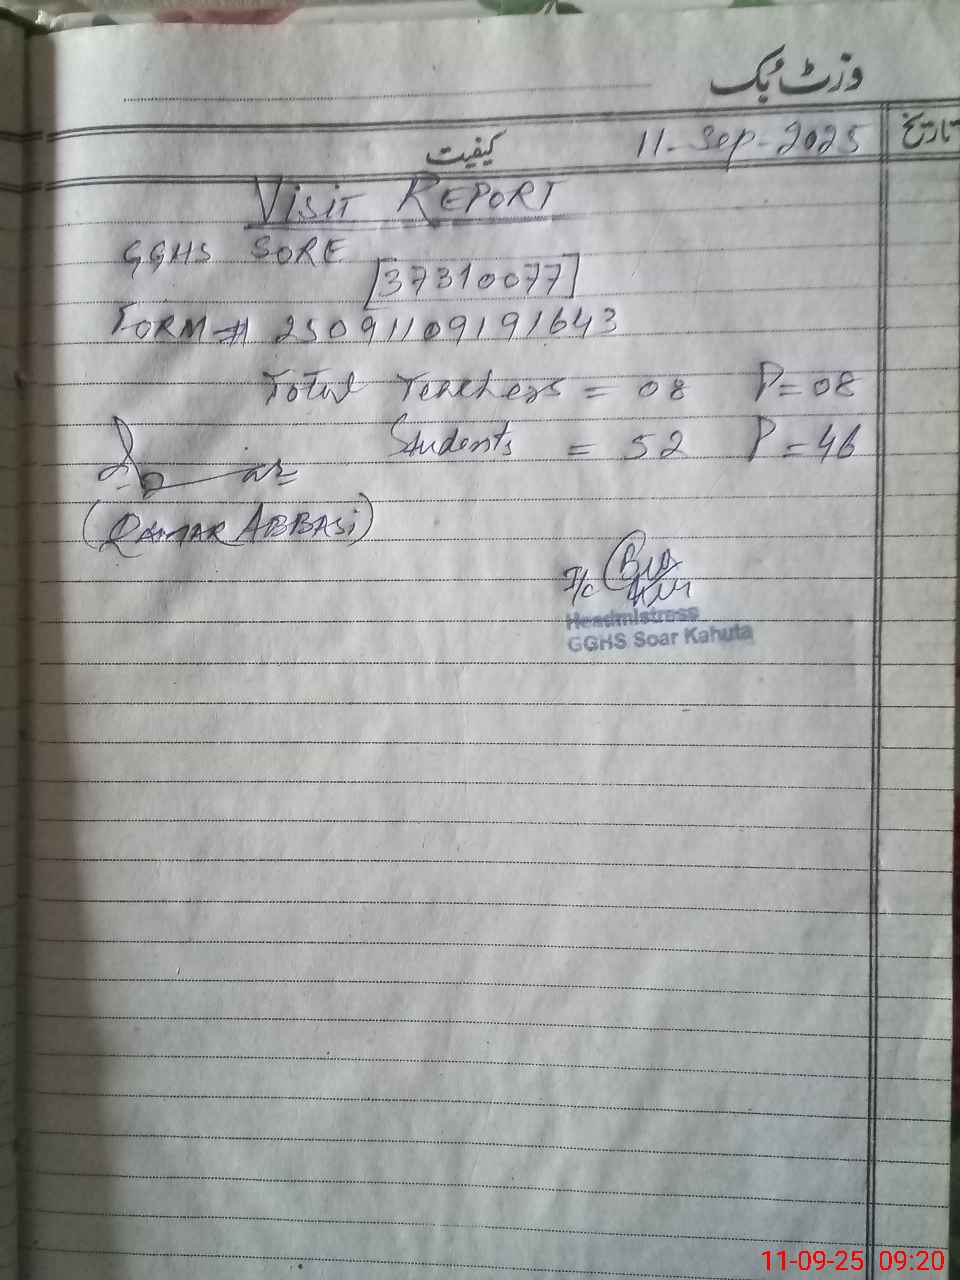 وزٹ بک
تاریخ 11-Sep-2025 کیفیت
VISIT REPORT
GGHS SORE
[37310077]
FORM# 25091109191643
Total Teachers = 08 P=08
Students = 52 P=46
(QAMAR ABBASi)
I/c
Headmistress
GGHS Soar Kahuta
11-09-25 09:20